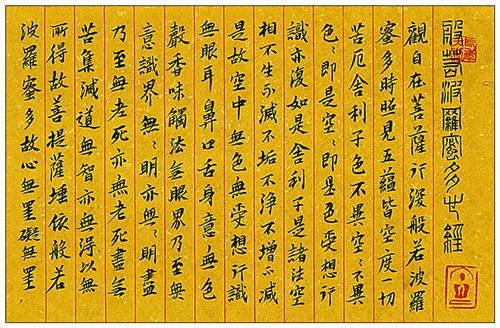 般若波羅蜜多心經
觀自在菩薩行深般若波羅
蜜多時照見五蘊皆空度一切
苦厄舍利子色不異空〻不異
色〻即是空〻即是色受想行
識亦復如是舍利子是諸法空
相不生不滅不垢不淨不增不減
是故空中無色無受想行識
無眼耳鼻口舌身意無色
聲香味觸法無眼界乃至無
意識界無〻明亦無〻明盡
乃至無老死亦無老死盡無
苦集滅道無智亦無得以無
所得故菩提薩埵依般若
波羅蜜多故心無罣礙無罣